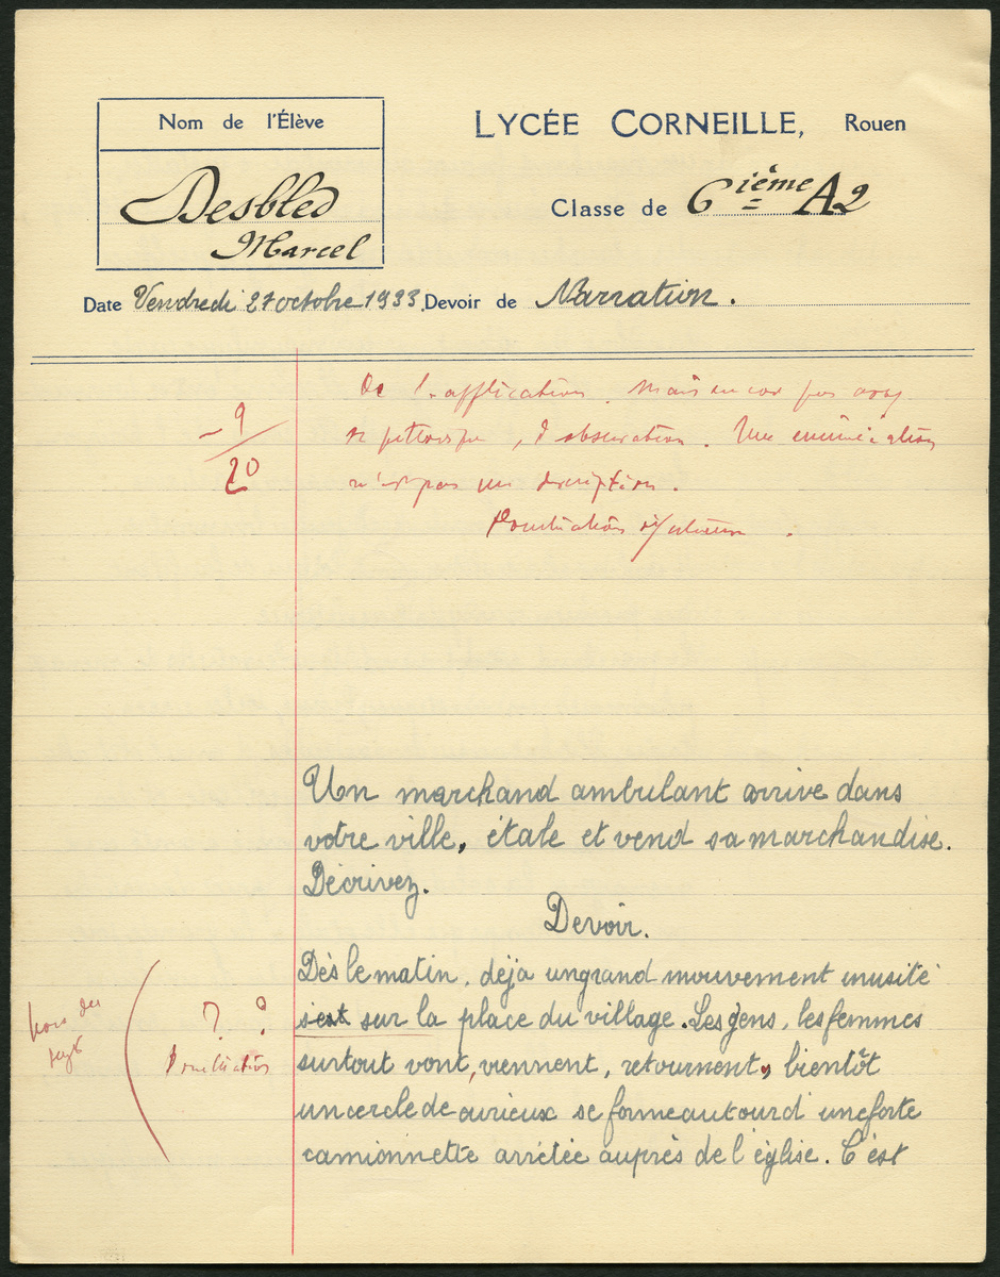 Nom de l'Élève
LYCÉE CORNEILLE, Rouen
Desbled
Marcel
Classe de 6ième A2
Date Vendredi 27 octobre 1933. Devoir de Narration.
De l'application. Mais encor pas assez
9
20
, d'observation. Une énumération
n'est pas une description.
Ponctuation
Un marchand ambulant arrive dans
votre ville, étale et vend sa marchandise.
Décrivez.
Devoir.
Dès le matin, déja un grand mouvement inusité
s'est sur la place du village. Les gens, les femmes
surtout vont, viennent, retournent, bientôt
un cercle de curieux se forme autour d'une forte
camionnette arrêtée auprès de l'église. C'est
hors du
sujet
? ?
Ponctuation